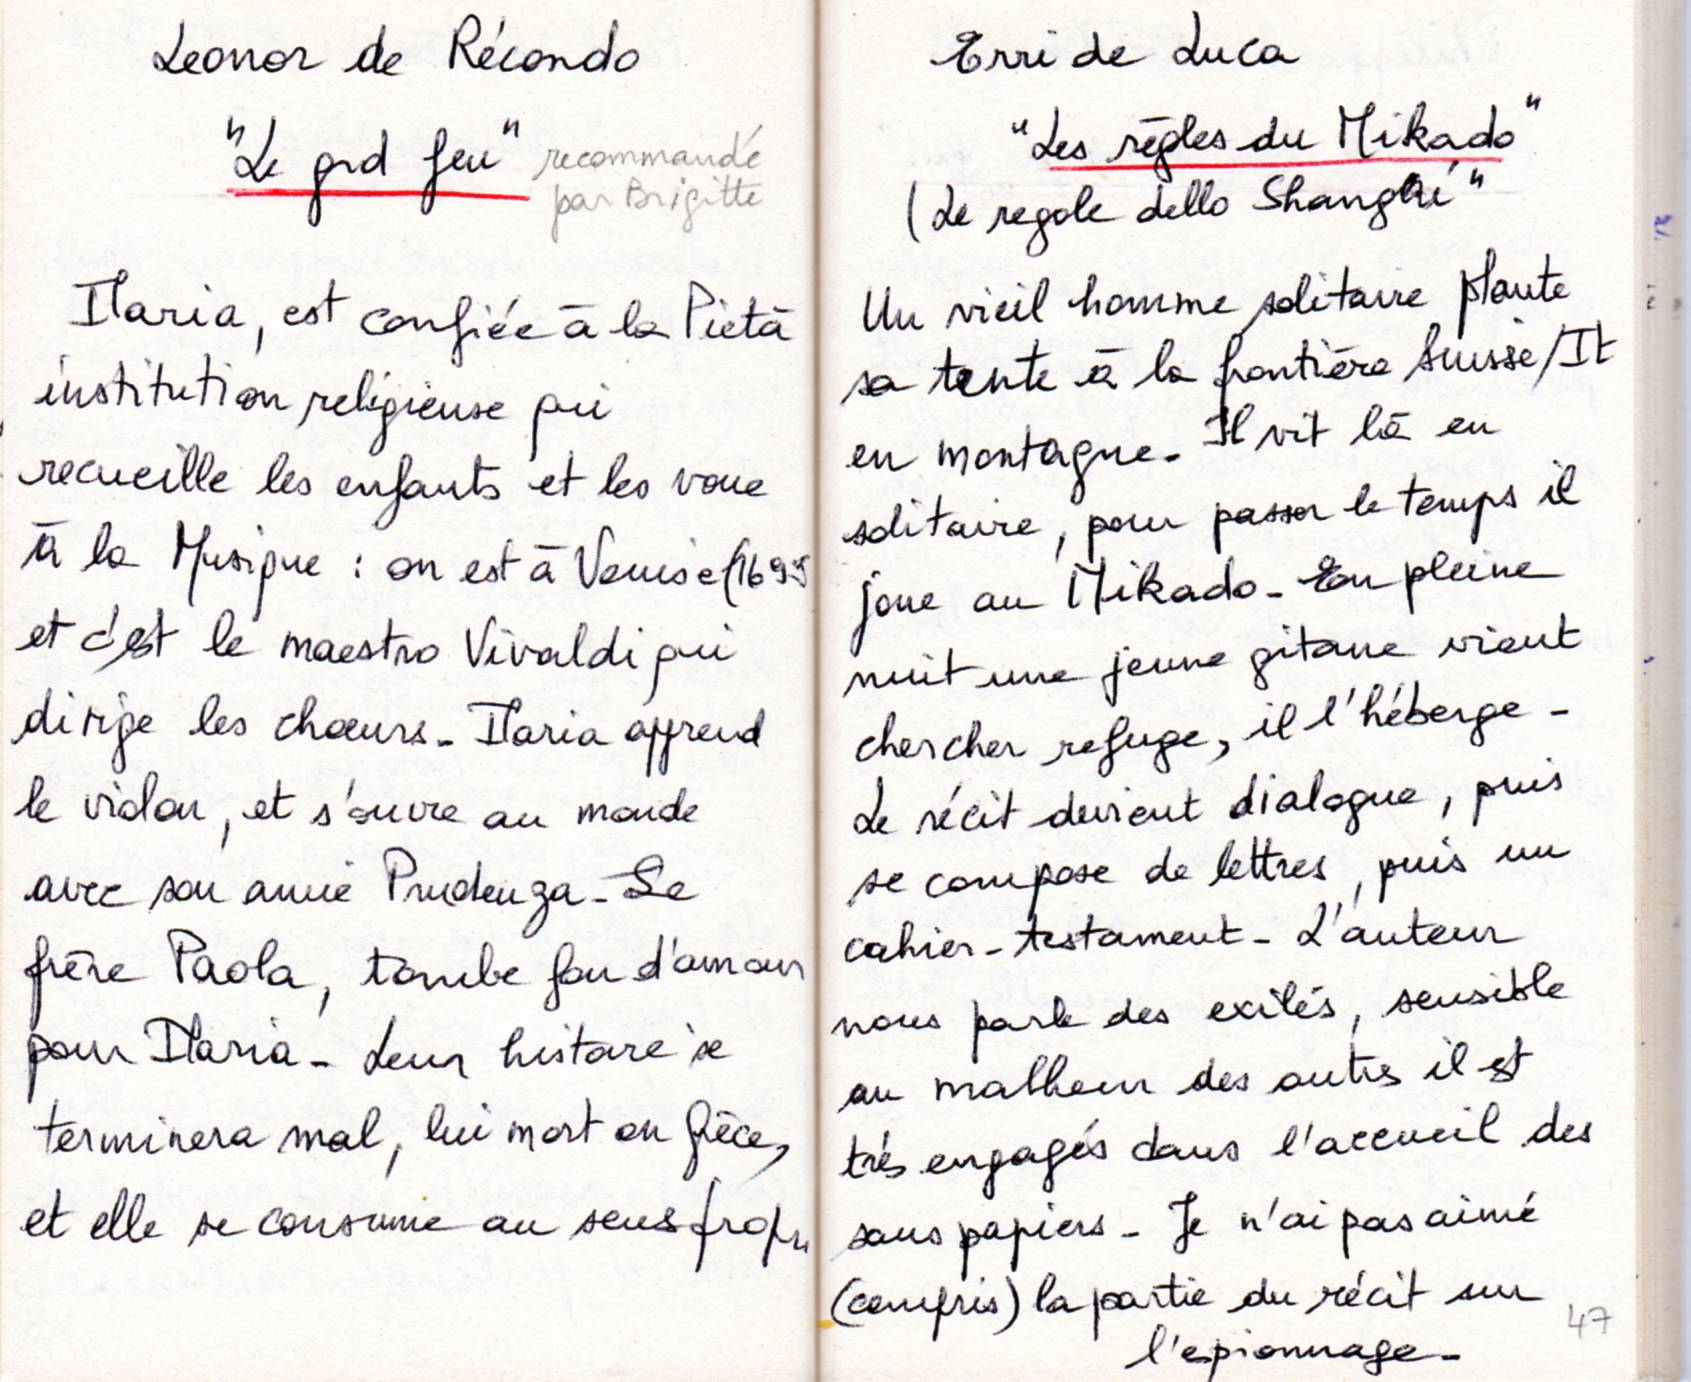 Leonor de Récondo
"Le grd feu"
recommandé
par Brigitte
Ilaria, est confiée à la Pietà
institution religieuse qui
recueille les enfants et les voue
à la Musique : on est à Venise (1699
et c'est le maestro Vivaldi qui
dirige les chœurs - Ilaria apprend
le violon, et s'ouvre au monde
avec son amie Prudenza - Le
frère Paola, tombe fou d'amour
pour Ilaria - Leur histoire se
terminera mal, lui mort en Grèce,
et elle se consume au sens propr
Erri de Luca
"Les règles du Mikado"
(Le regole dello Shangaï"
Un vieil homme solitaire plante
sa tente à la frontière Suisse/It
en montagne - Il vit là en
solitaire, pour passer le temps il
joue au Mikado - En pleine
nuit une jeune gitane vient
chercher refuge, il l'héberge -
Le récit devient dialogue, puis
se compose de lettres, puis un
cahier-testament - L'auteur
nous parle des exilés, sensible
au malheur des autres il est
très engagés dans l'accueil des
sans papiers - Je n'ai pas aimé
(compris) la partie du récit sur
l'espionnage -
47